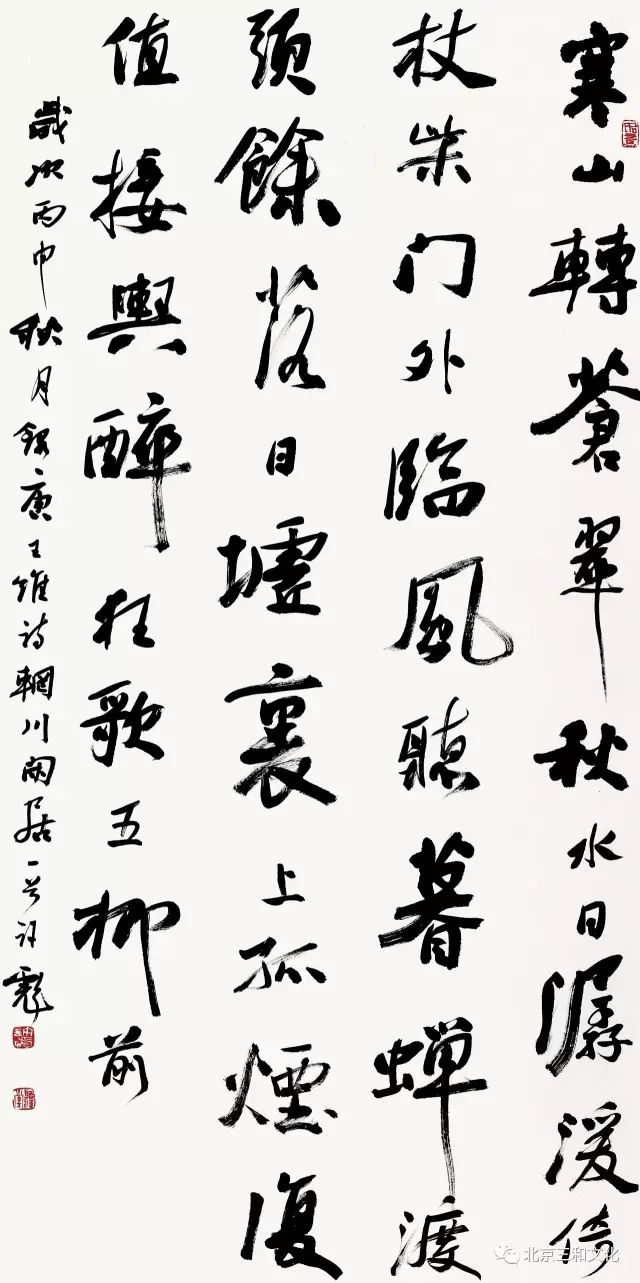 寒山轉蒼翠秋水日潺湲倚
杖柴门外臨風聽暮蝉渡
頭餘落日墟裏上孤煙復
值接輿醉狂歌五柳前
歲次丙申秋月録唐王維诗輞川闲居一首许彪
北京三和文化